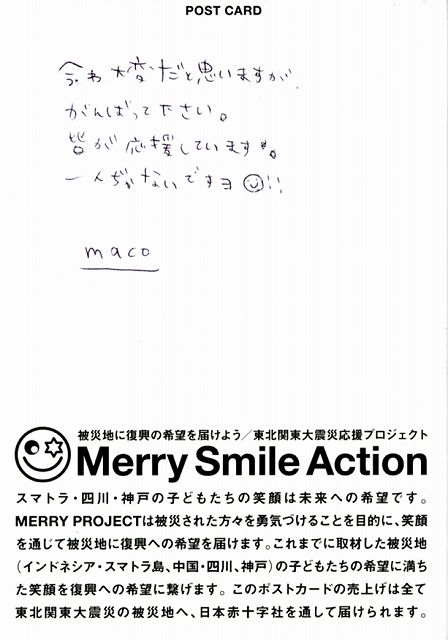 POST CARD
今わ大変だと思いますが
がんばって下さい。
皆が応援しています。
一人ぢゃないですヨ!!
maco
被災地に復興の希望を届けよう/東北関東大震災応援プロジェクト
Merry Smile Action
スマトラ・四川・神戸の子どもたちの笑顔は未来への希望です。
MERRY PROJECTは被災された方々を勇気づけることを目的に、笑顔
を通じて被災地に復興への希望を届けます。これまでに取材した被災地
(インドネシア・スマトラ島、中国・四川、神戸)の子どもたちの希望に満ち
た笑顔を復興への希望に繋げます。このポストカードの売上げは全て
東北関東大震災の被災地へ、日本赤十字社を通して届けられます。